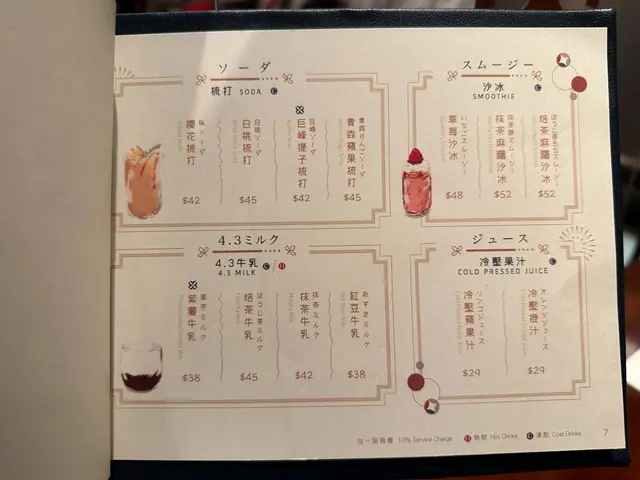 ソーダ
梳打 SODA C
青森りんごソーダ
青森蘋果梳打
$45
巨峰ソーダ
巨峰提子梳打
$42
白桃ソーダ
白桃梳打
$45
桜ソーダ
櫻花梳打
$42
スムージー
沙冰 C
SMOOTHIE
焙茶麻糬沙冰
$52
抹茶麻糬沙冰
$52
いちごスムージー
草莓沙冰
$48
4.3ミルク
4.3牛乳 C/H
4.3 MILK
あずきミルク
紅豆牛乳
$38
抹茶ミルク
抹茶牛乳
$42
ほうじ茶ミルク
焙茶牛乳
$45
紫芋ミルク
紫薯牛乳
$38
ジュース
冷壓果汁 C
COLD PRESSED JUICE
オレンジジュース
冷壓橙汁
$29
リンゴジュース
冷壓蘋果汁
$29
加一服務費 10% Service Charge H 熱飲 Hot Drinks C 凍飲 Cold Drinks
7